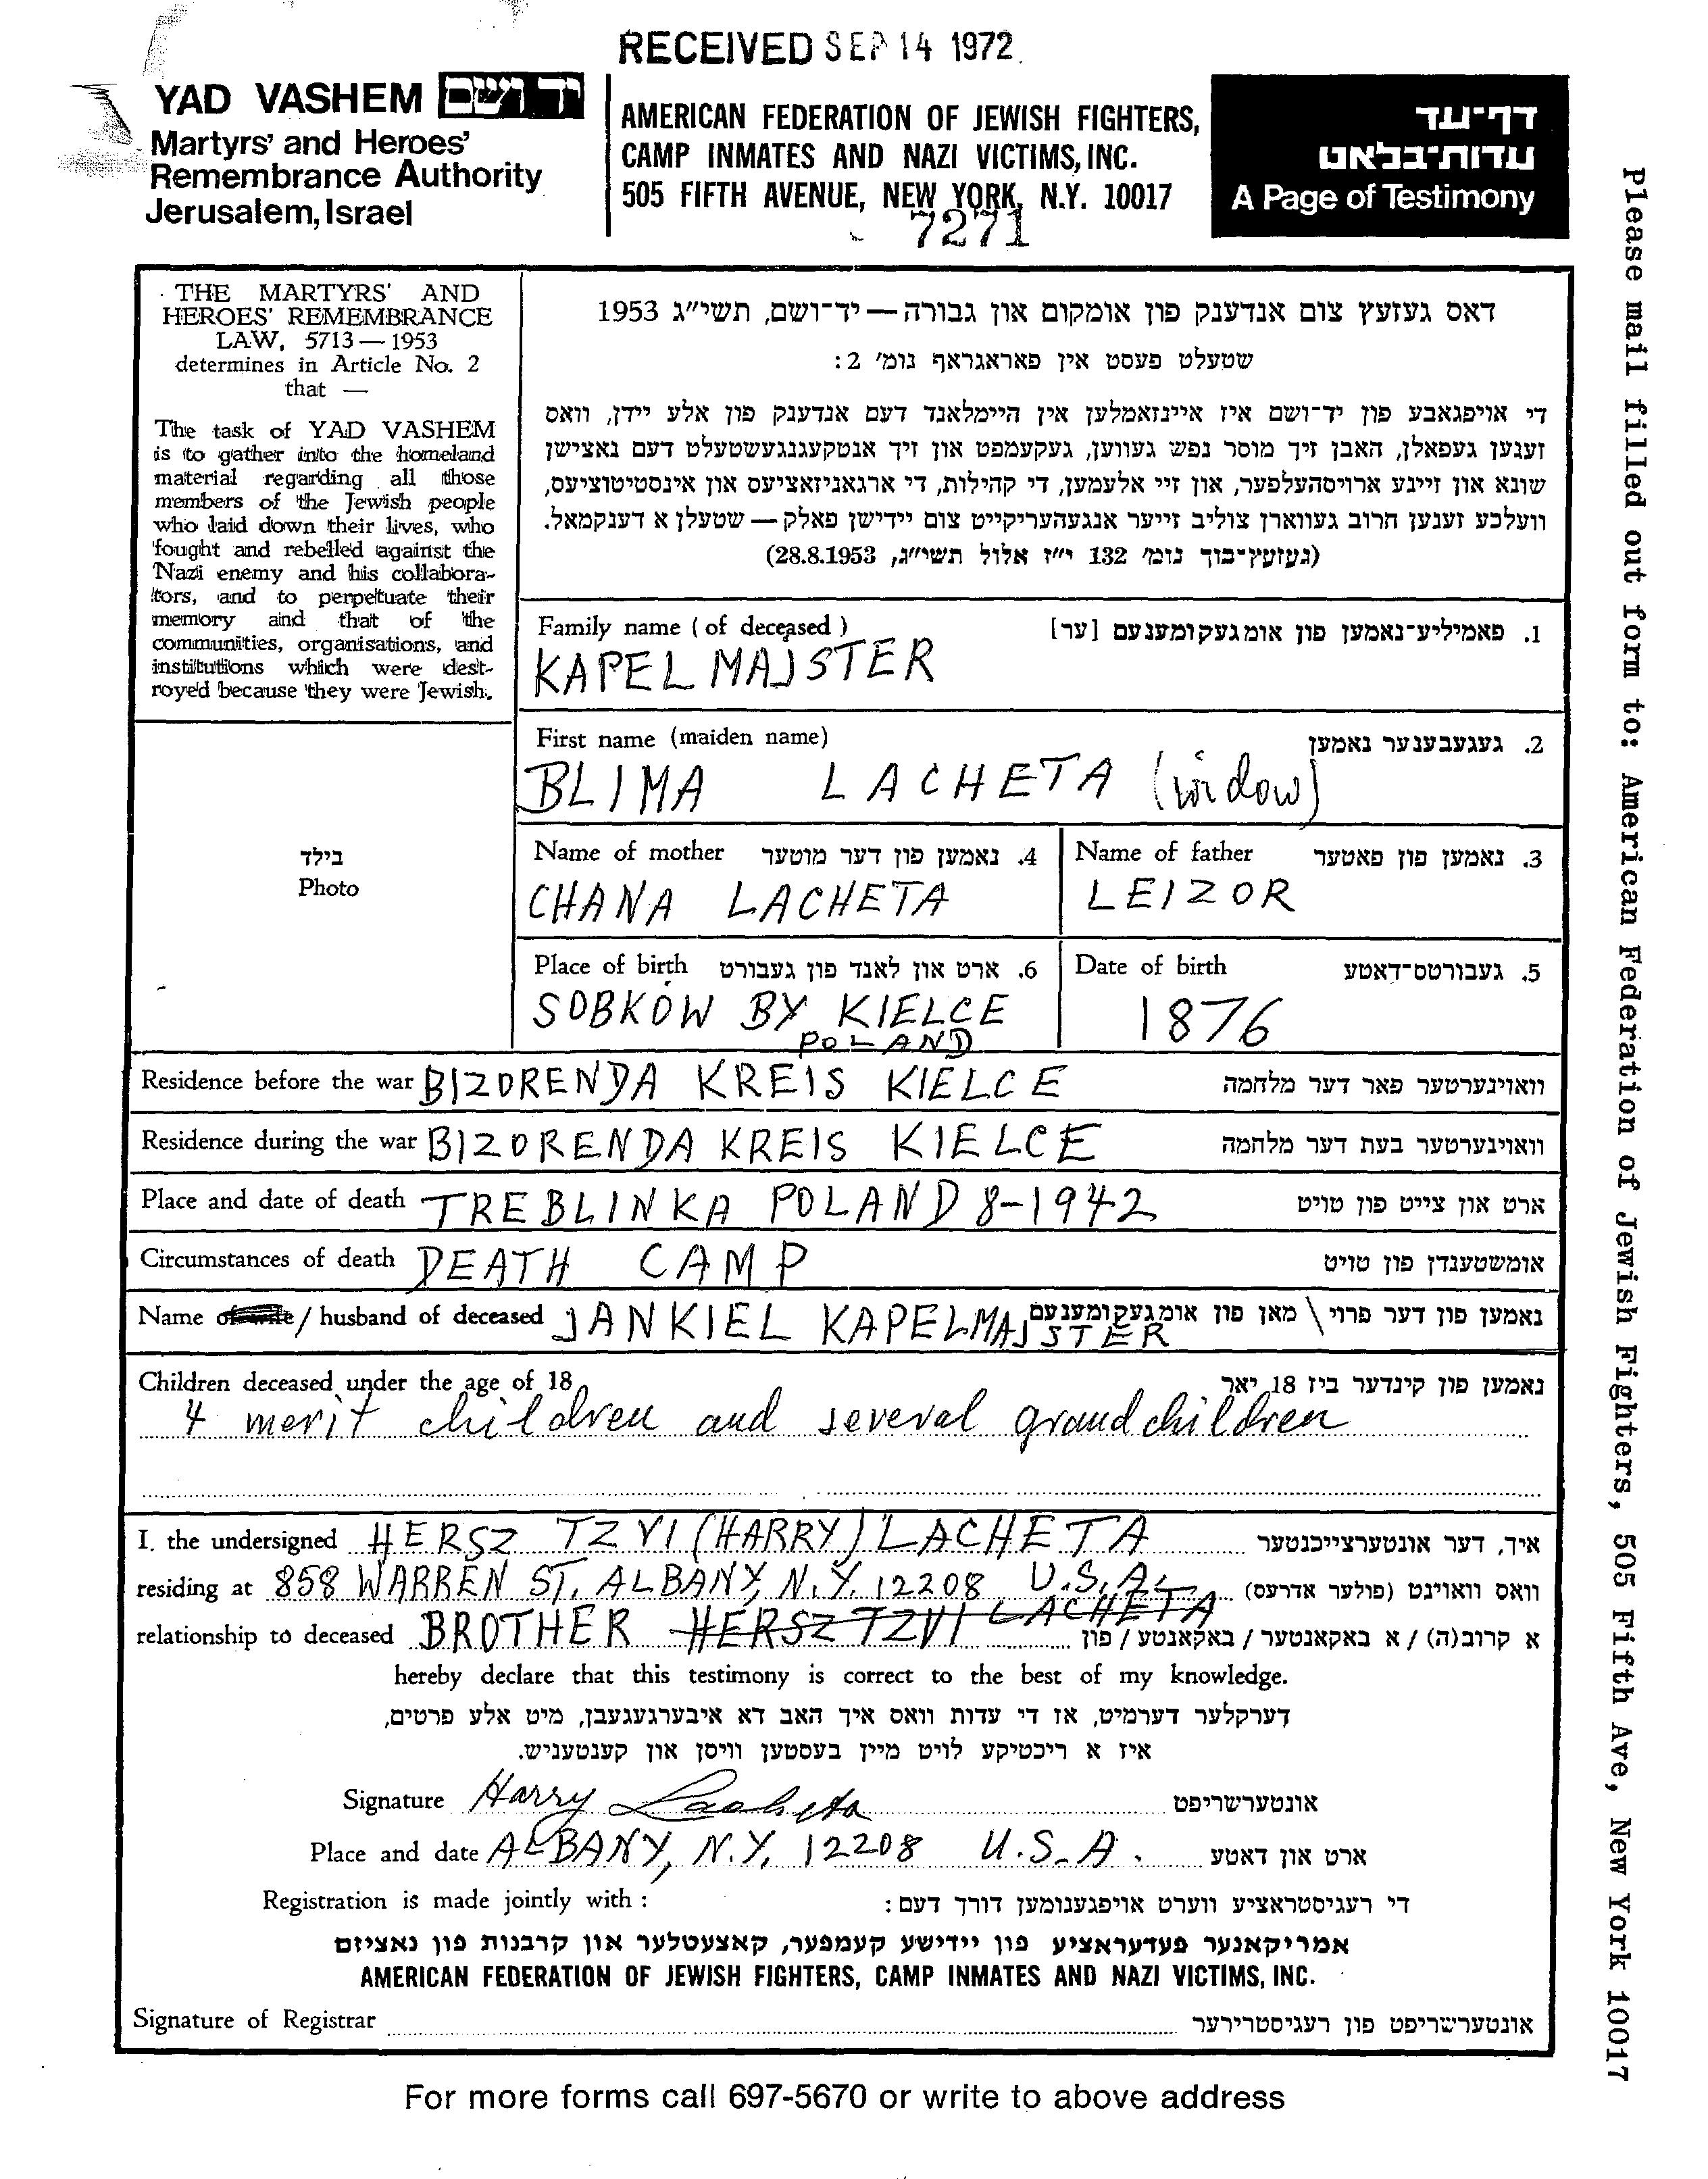 RECEIVED SEP 14 1972
YAD VASHEM יד ושם
Martyrs' and Heroes'
Remembrance Authority
Jerusalem, Israel
AMERICAN FEDERATION OF JEWISH FIGHTERS,
CAMP INMATES AND NAZI VICTIMS, INC.
505 FIFTH AVENUE, NEW YORK, N.Y. 10017
7271
דף-עד
עדות-בלאט
A Page of Testimony
Please mail filled out form to: American Federation of Jewish Fighters, 505 Fifth Ave, New York 10017
THE MARTYRS' AND
HEROES' REMEMBRANCE
LAW, 5713 — 1953
determines in Article No. 2
that —
The task of YAD VASHEM
is to gather into the homeland
material regarding all those
members of the Jewish people
who laid down their lives, who
fought and rebelled against the
Nazi enemy and his collabora-
tors, and to perpetuate their
memory and that of the
communities, organisations, and
institutions which were dest-
royed because they were Jewish.
דאס געזעץ צום אנדענק פון אומקום און גבורה — יד-ושם, תשי״ג 1953
שטעלט פעסט אין פאראגראף נומ׳ 2 :
די אויפגאבע פון יד-ושם איז איינזאמלען אין היימלאנד דעם אנדענק פון אלע יידן, וואס
זענען געפאלן, האבן זיך מוסר נפש געווען, געקעמפט און זיך אנטקעגנגעשטעלט דעם נאצישן
שונא און זיינע ארויסהעלפער, און זיי אלעמען, די קהילות, די ארגאניזאציעס און אינסטיטוציעס,
וועלכע זענען חרוב געווארן צוליב זייער אנגעהעריקייט צום יידישן פאלק — שטעלן א דענקמאל.
(געזעץ-בוך נומ׳ 132 י״ז אלול תשי״ג, 28.8.1953)
Family name ( of deceased ) 1. פאמיליע-נאמען פון אומגעקומענעם [ער]
KAPELMAJSTER
First name (maiden name) 2. געגעבענער נאמען
BLIMA LACHETA (widow)
Name of mother 4. נאמען פון דער מוטער
CHANA LACHETA
Name of father 3. נאמען פון פאטער
LEIZOR
בילד
Photo
Place of birth 6. ארט און לאנד פון געבורט
SOBKÓW BY KIELCE
POLAND
Date of birth 5. געבורטס-דאטע
1876
Residence before the war BIZORENDA KREIS KIELCE וואוינערטער פאר דער מלחמה
Residence during the war BIZORENDA KREIS KIELCE וואוינערטער בעת דער מלחמה
Place and date of death TREBLINKA POLAND 8-1942 ארט און צייט פון טויט
Circumstances of death DEATH CAMP אומשטענדן פון טויט
Name of wife / husband of deceased JANKIEL KAPELMAJSTER נאמען פון דער פרוי \ מאן פון אומגעקומענעם
Children deceased under the age of 18 נאמען פון קינדער ביז 18 יאר
4 merit children and several grandchildren
I, the undersigned HERSZ TZVI (HARRY) LACHETA איך, דער אונטערצייכנטער
residing at 858 WARREN ST. ALBANY, N.Y. 12208 U.S.A. וואס וואוינט (פולער אדרעס)
relationship to deceased BROTHER HERSZ TZVI LACHETA א קרוב(ה) / א באקאנטער / באקאנטע / פון
hereby declare that this testimony is correct to the best of my knowledge.
דערקלער דערמיט, אז די עדות וואס איך האב דא איבערגעגעבן, מיט אלע פרטים,
איז א ריכטיקע לויט מיין בעסטען וויסן און קענטעניש.
Signature Harry Lacheta אונטערשריפט
Place and date ALBANY, N.Y. 12208 U.S.A. ארט און דאטע
Registration is made jointly with : די רעגיסטראציע ווערט אויפגענומען דורך דעם :
אמריקאנער פעדעראציע פון יידישע קעמפער, קאצעטלער און קרבנות פון נאציזם
AMERICAN FEDERATION OF JEWISH FIGHTERS, CAMP INMATES AND NAZI VICTIMS, INC.
Signature of Registrar אונטערשריפט פון רעגיסטרירער
For more forms call 697-5670 or write to above address